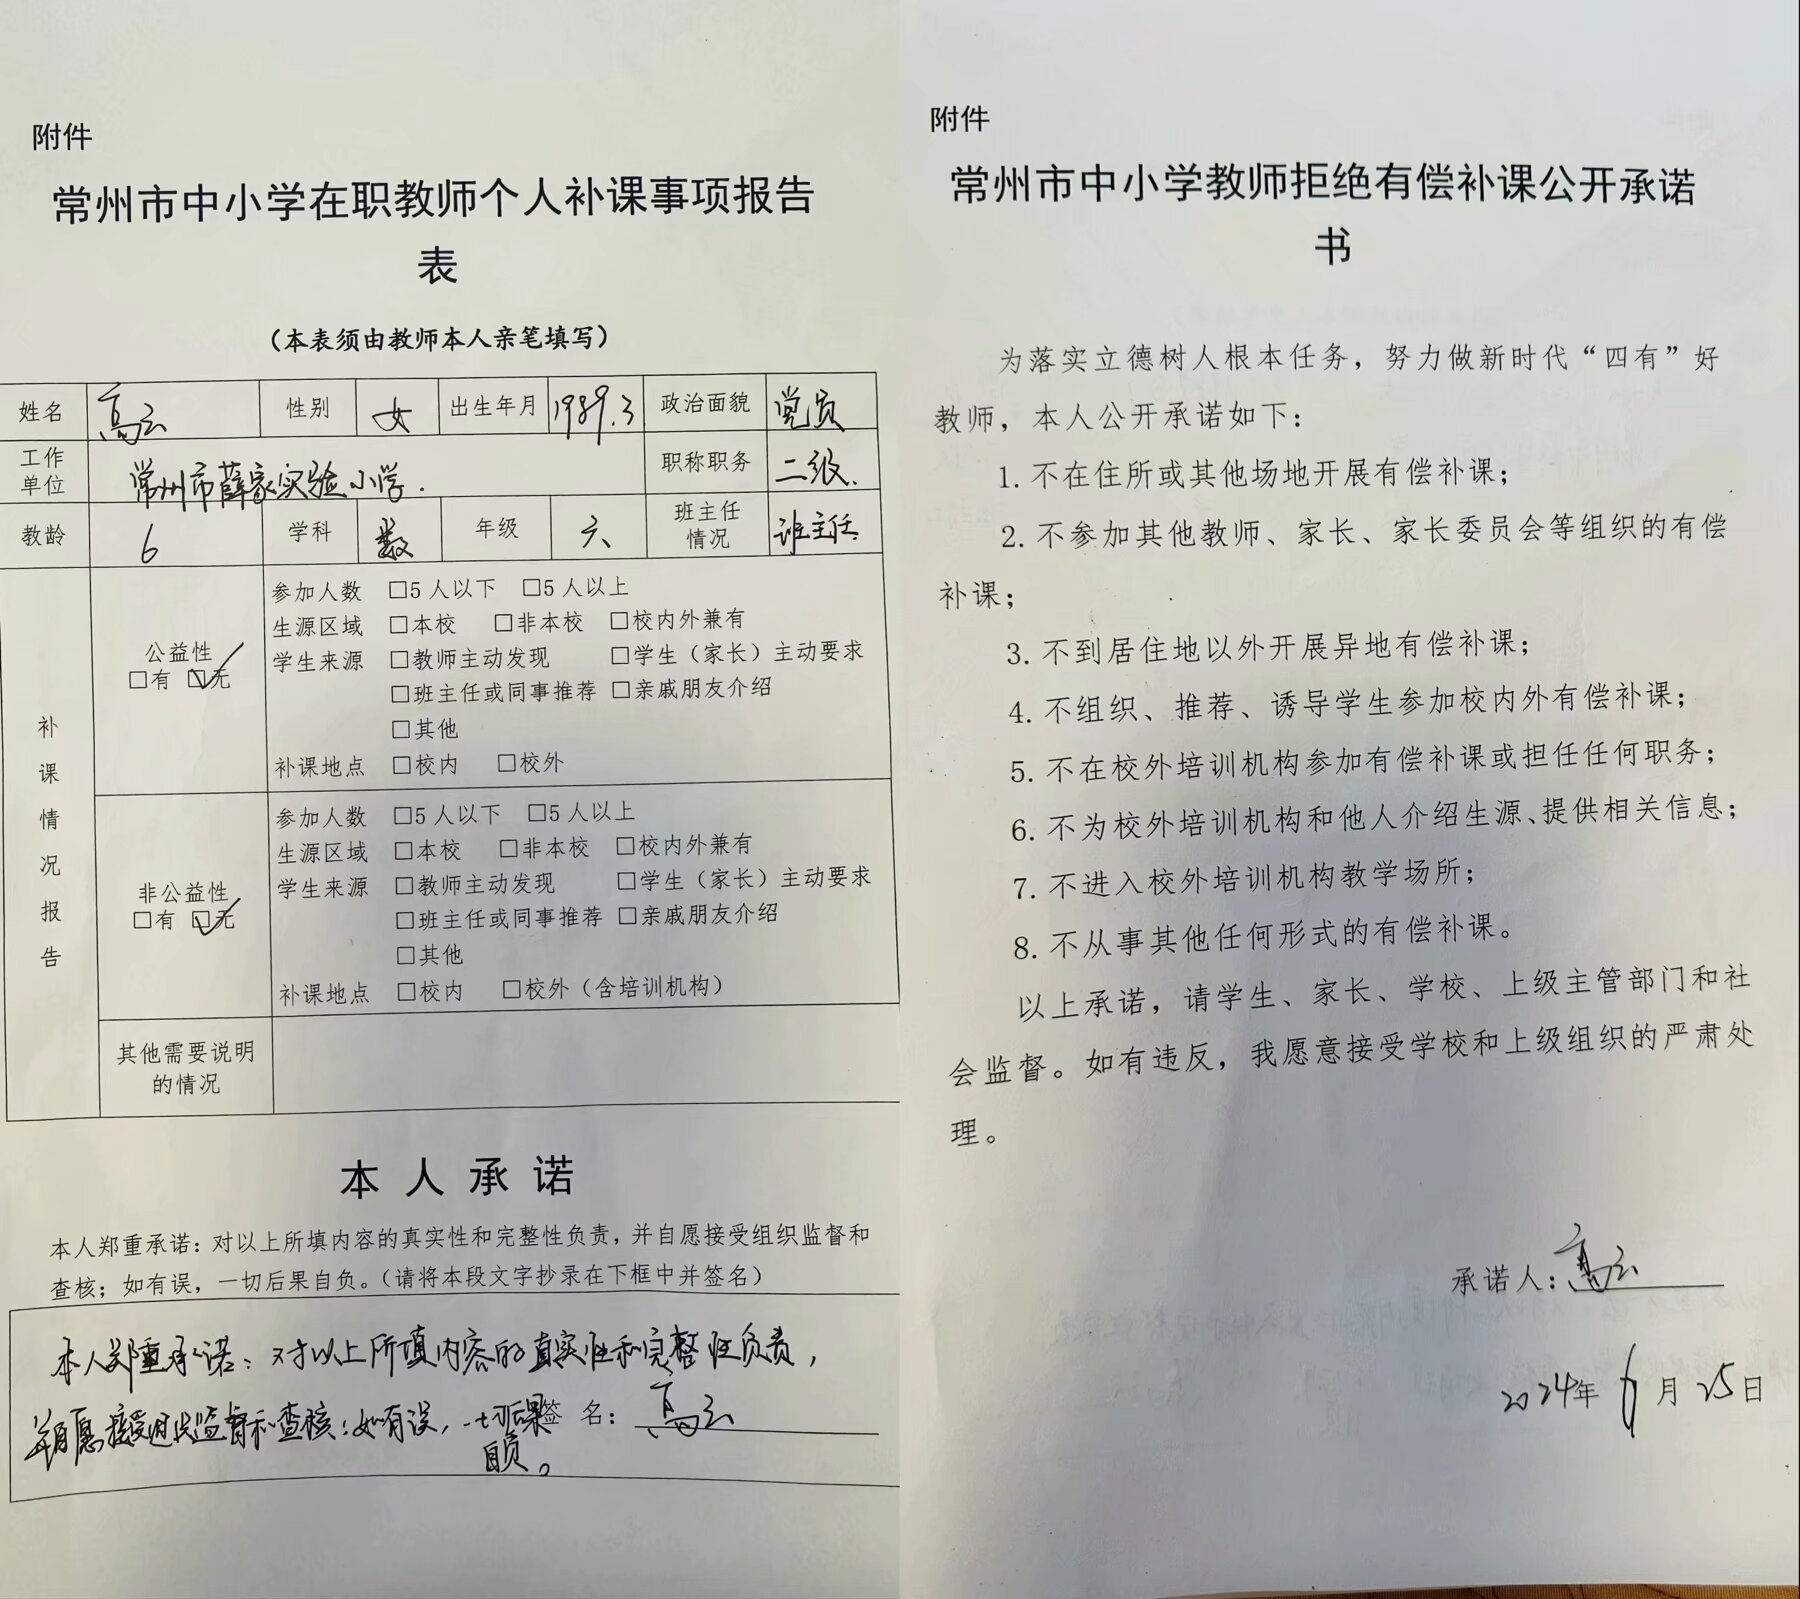 附件
常州市中小学在职教师个人补课事项报告
表
（本表须由教师本人亲笔填写）
姓名 高云 性别 女 出生年月 1989.3 政治面貌 党员
工作单位 常州市薛家实验小学. 职称职务 二级.
教龄 6 学科 数 年级 六 班主任情况 班主任
补课情况报告
公益性
□有 □无
参加人数 □5人以下 □5人以上
生源区域 □本校 □非本校 □校内外兼有
学生来源 □教师主动发现 □学生（家长）主动要求
□班主任或同事推荐 □亲戚朋友介绍
□其他
补课地点 □校内 □校外
非公益性
□有 □无
参加人数 □5人以下 □5人以上
生源区域 □本校 □非本校 □校内外兼有
学生来源 □教师主动发现 □学生（家长）主动要求
□班主任或同事推荐 □亲戚朋友介绍
□其他
补课地点 □校内 □校外（含培训机构）
其他需要说明
的情况
本人承诺
本人郑重承诺：对以上所填内容的真实性和完整性负责，并自愿接受组织监督和
查核；如有误，一切后果自负。（请将本段文字抄录在下框中并签名）
本人郑重承诺：对以上所填内容的真实性和完整性负责，
并自愿接受组织监督和查核；如有误，一切后果
自负。
签名：高云
附件
常州市中小学教师拒绝有偿补课公开承诺
书
为落实立德树人根本任务，努力做新时代“四有”好
教师，本人公开承诺如下：
1. 不在住所或其他场地开展有偿补课；
2. 不参加其他教师、家长、家长委员会等组织的有偿
补课；
3. 不到居住地以外开展异地有偿补课；
4. 不组织、推荐、诱导学生参加校内外有偿补课；
5. 不在校外培训机构参加有偿补课或担任任何职务；
6. 不为校外培训机构和他人介绍生源、提供相关信息；
7. 不进入校外培训机构教学场所；
8. 不从事其他任何形式的有偿补课。
以上承诺，请学生、家长、学校、上级主管部门和社
会监督。如有违反，我愿意接受学校和上级组织的严肃处
理。
承诺人：高云
2024年6月25日